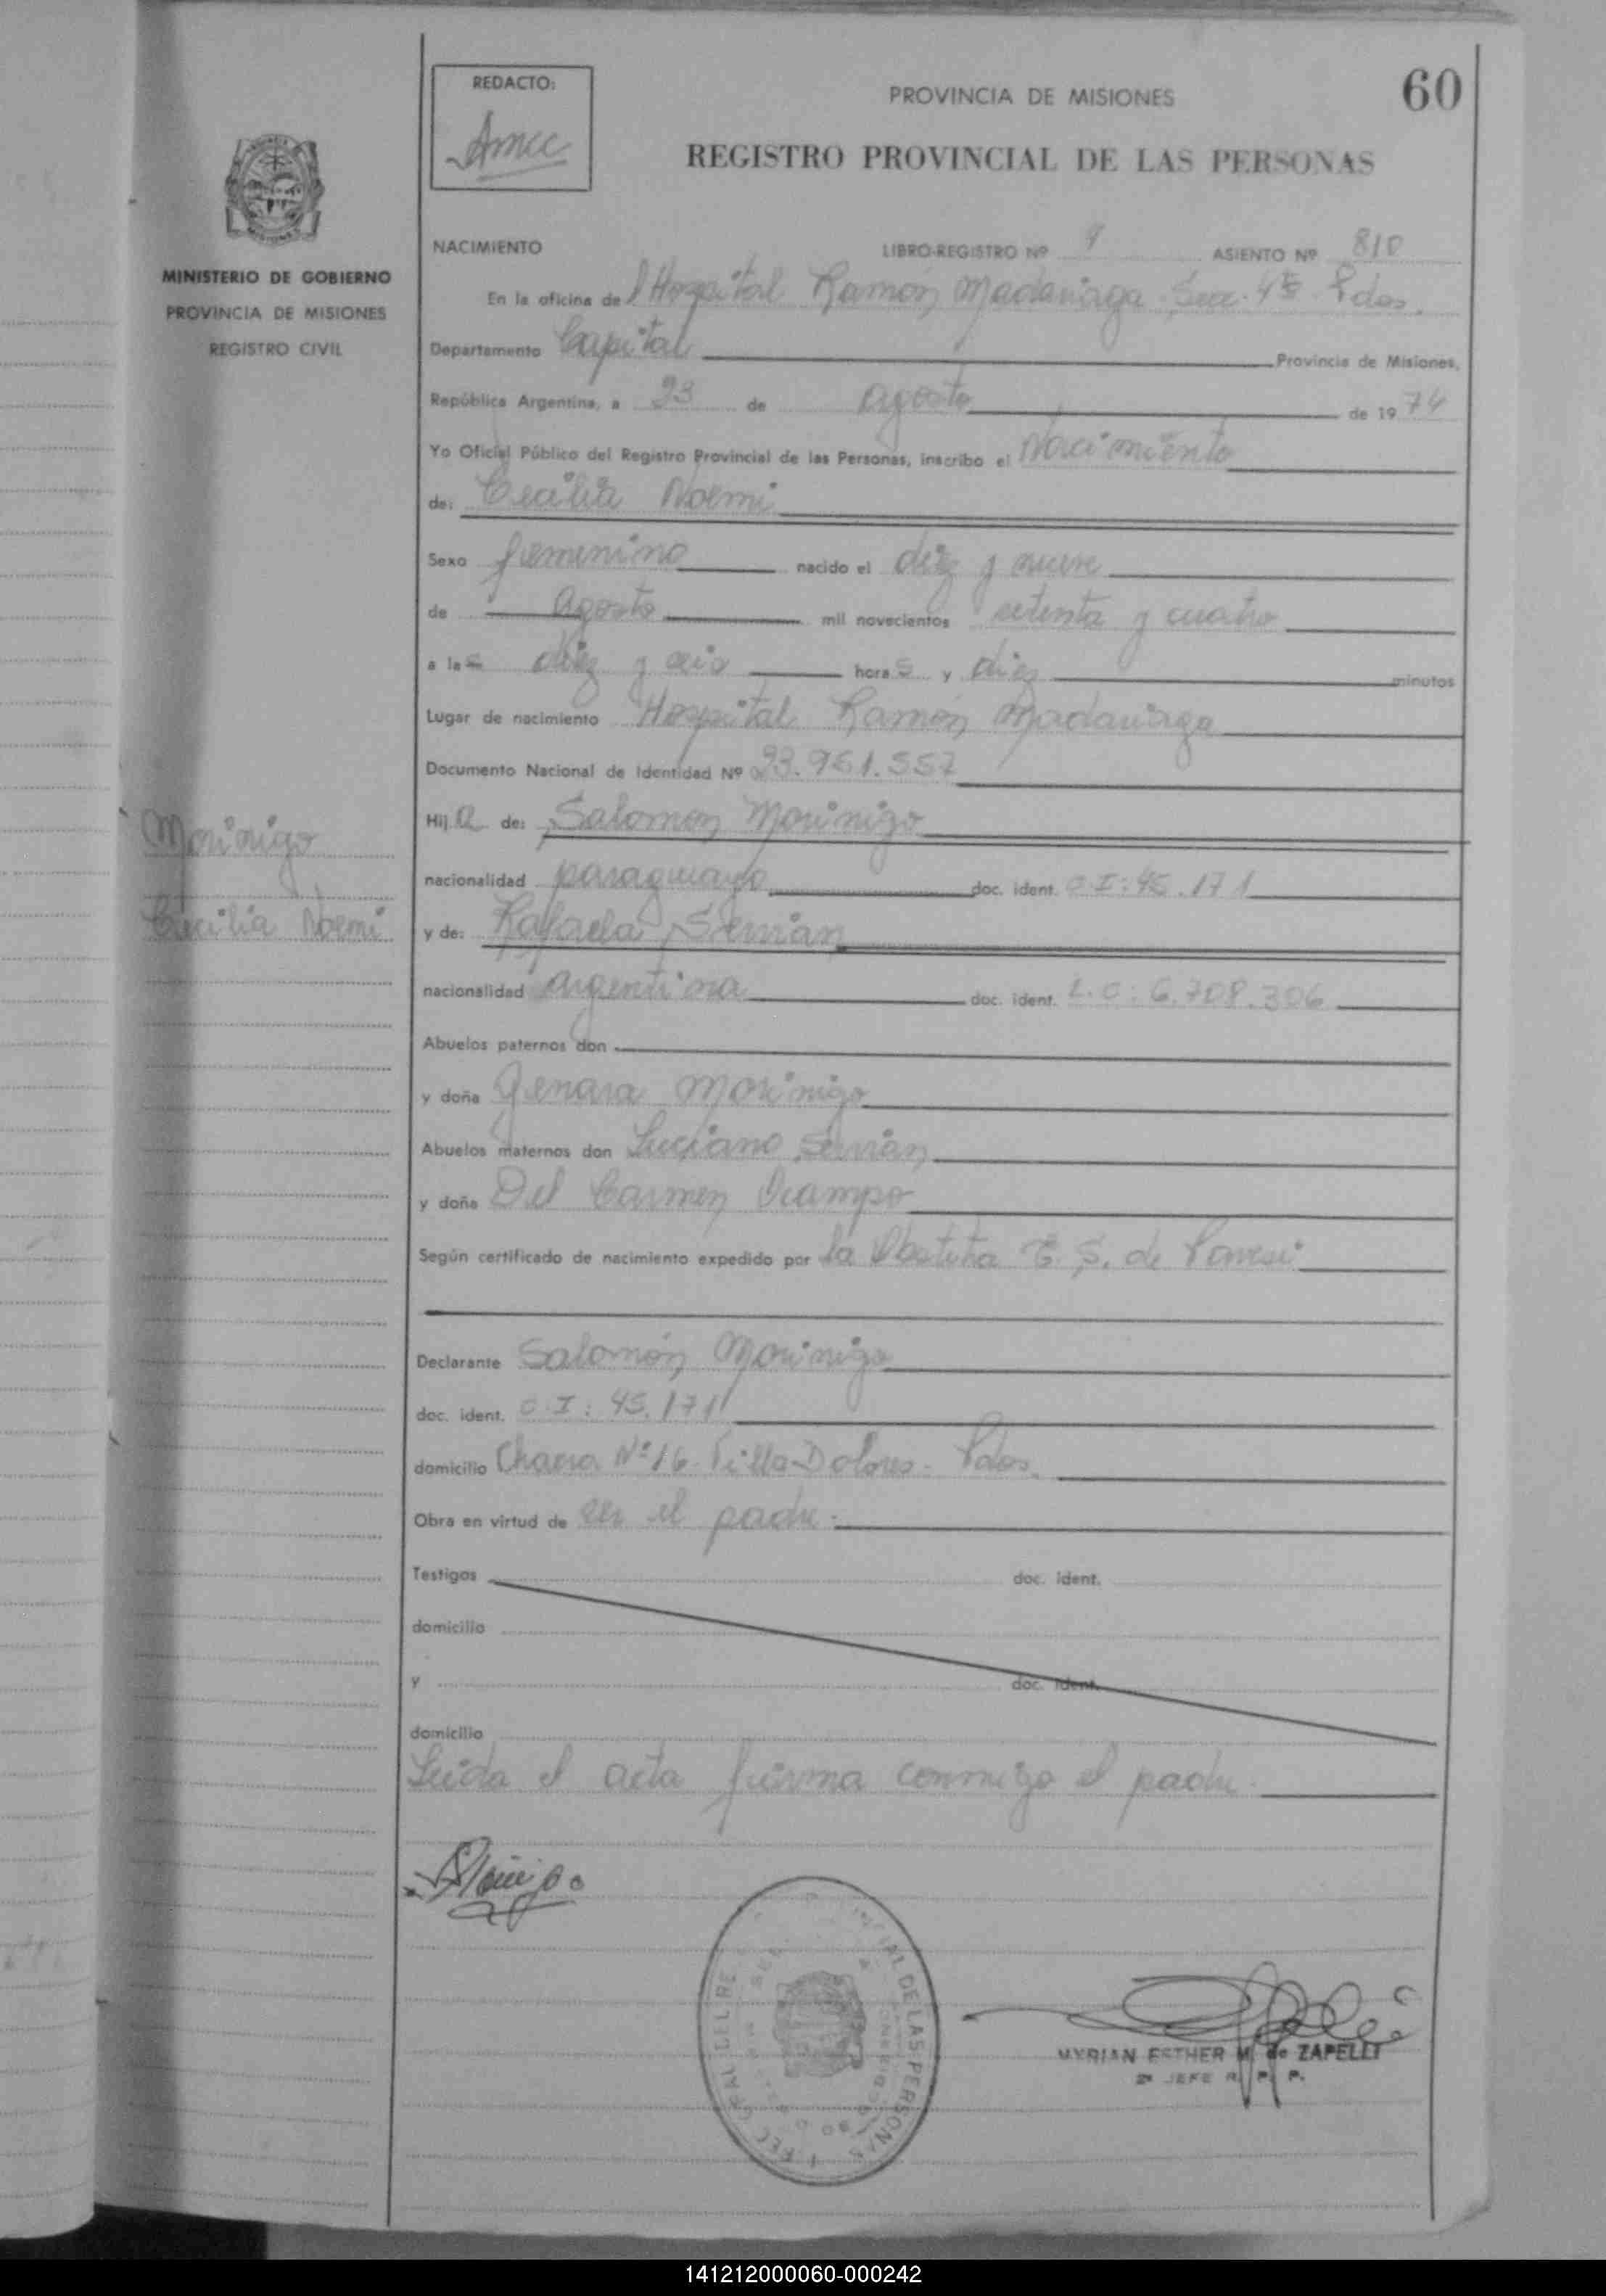 REDACTO:
Amcc
60
PROVINCIA DE MISIONES
REGISTRO PROVINCIAL DE LAS PERSONAS
MINISTERIO DE GOBIERNO
PROVINCIA DE MISIONES
REGISTRO CIVIL
NACIMIENTO LIBRO-REGISTRO Nº ASIENTO Nº 810
En la oficina de l Hospital Ramón Madariaga Secc. 4ta Pdas.
Departamento Capital Provincia de Misiones,
República Argentina, a 23 de agosto de 1974
Yo Oficial Público del Registro Provincial de las Personas, inscribo el Nacimiento
de: Cecilia Noemi
Sexo femenino nacido el diez y nueve
de agosto mil novecientos setenta y cuatro
a las diez y seis horas y diez minutos
Lugar de nacimiento Hospital Ramón Madariaga
Documento Nacional de Identidad Nº 23.951.557
Morinigo
Cecilia Noemi
Hija de: Salomón Morinigo
nacionalidad paraguayo doc. ident. C.I: 45.171
y de: Rafaela Servián
nacionalidad argentina doc. ident. L.C: 6.708.306
Abuelos paternos don
y doña Genara Morinigo
Abuelos maternos don Luciano Servián
y doña Del Carmen Ocampo
Según certificado de nacimiento expedido por la Obstetra E. S. de
Declarante Salomón Morinigo
doc. ident. C.I: 45.171
domicilio Chacra Nº 16 Villa Dolores - Pdas.
Obra en virtud de ser el padre.
Testigos doc. ident.
domicilio
y doc. ident.
domicilio
Leida el acta firma conmigo el padre.
MYRIAN ESTHER M. de ZAPELLI
2º JEFE R. P. P.
DE LAS PERSONAS
141212000060-000242